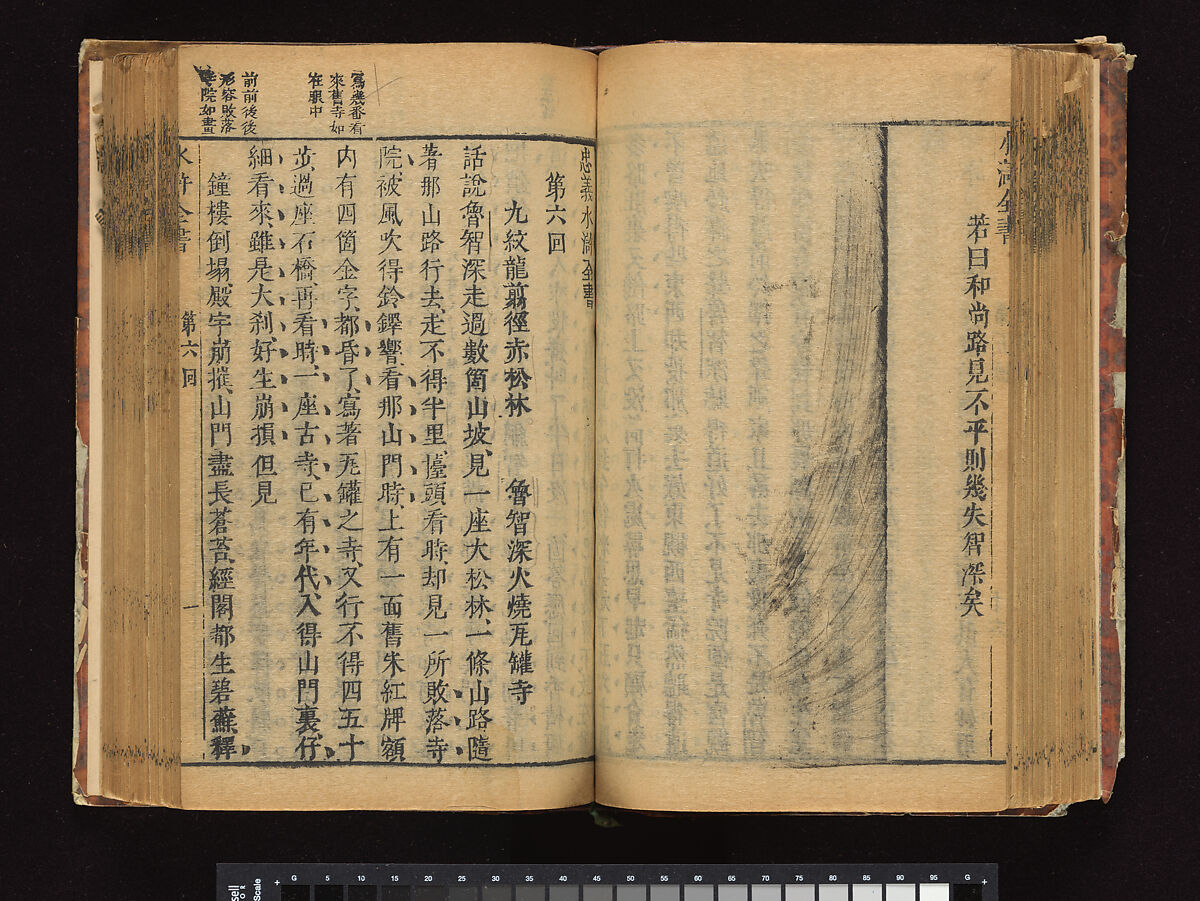 若曰和尚路見不平則幾失智深矣
忠義水滸全書
第六回
九紋龍翦徑赤松林 魯智深火燒瓦罐寺
話說魯智深走過數箇山坡、見一座大松林、一條山路、隨
著那山路行去、走不得半里、擡頭看時、却見一所敗落寺
院、被風吹得鈴鐸響、看那山門時、上有一面舊朱紅牌額
內有四箇金字、都昏了、寫著瓦罐之寺、又行不得四五十
步、過座石橋、再看時、一座古寺、已有年代、入得山門裏、仔
細看來、雖是大刹、好生崩損、但見
鐘樓倒塌、殿宇崩摧、山門盡長蒼苔、經閣都生碧蘚、釋
寫幾番看
來舊寺如
在眼中
前前後後
形容敗落
寺院如畫
水滸全書 第六回 一